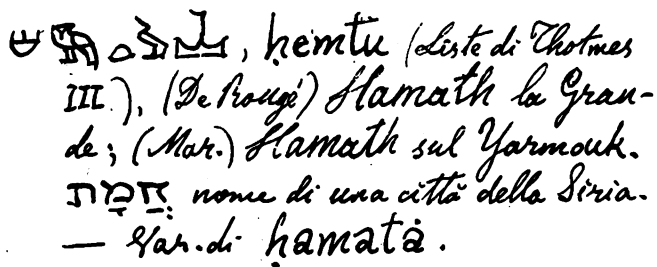 , ḥemtu (Liste di Thotmes
III.), (De Rougé) Hamath la Gran-
de; (Mar.) Hamath sul Yarmouk.
חֲמָת nome di una città della Siria.
— Var. di ḥamatȧ.